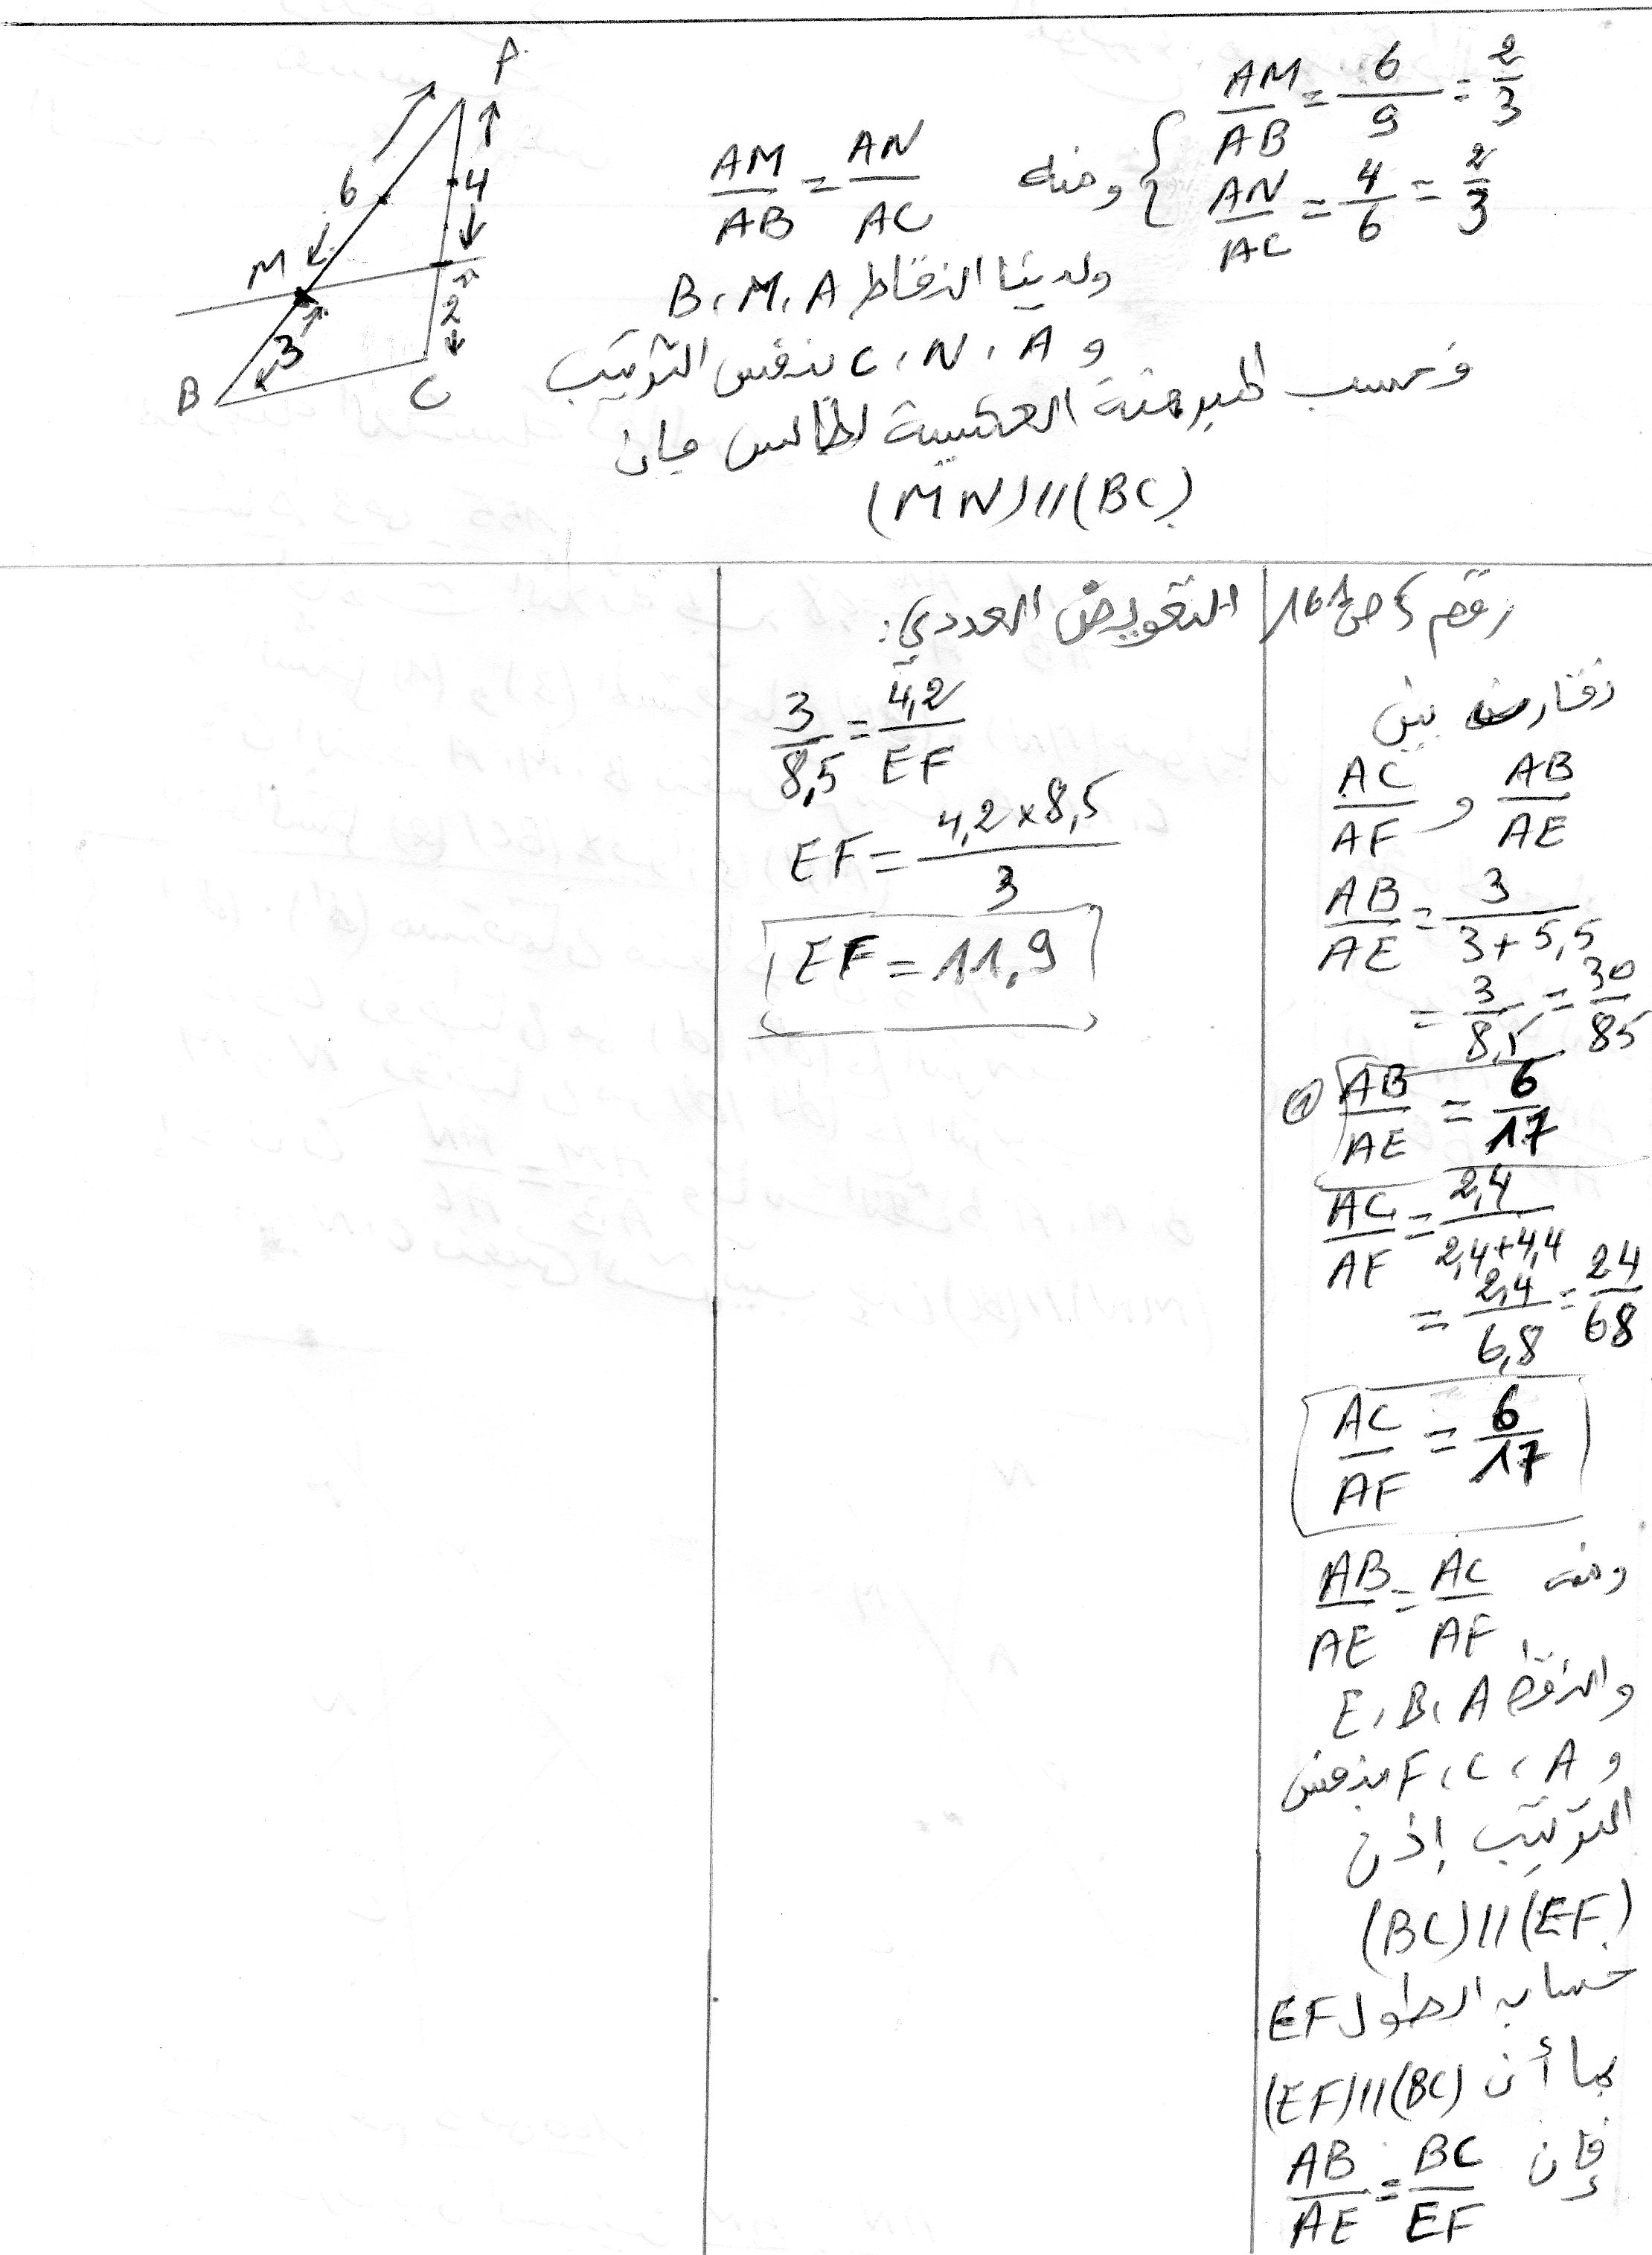 A
6
4
M
2
3
B
C
AM/AB = 6/9 = 2/3
AN/AC = 4/6 = 2/3
ومنه AM/AB = AN/AC
ولدينا النقاط B، M، A
و C، N، A بنفس الترتيب
فحسب المبرهنة العكسية لطالس فإن
(MN)//(BC)
رقم 5 ص 161
نقارن بين
AB/AE و AC/AF
AB/AE = 3/3+5,5
= 3/8,5 = 30/85
① AB/AE = 6/17
AC/AF = 2,4/2,4+4,4
= 2,4/6,8 = 24/68
AC/AF = 6/17
ومنه AB/AE = AC/AF
والنقط E، B، A
و F، C، A بنفس
الترتيب إذن
(BC)//(EF)
حساب الطول EF
بما أن (EF)//(BC)
فإن AB/AE = BC/EF
التعويض العددي:
3/8,5 = 4,2/EF
EF = 4,2×8,5/3
EF = 11,9